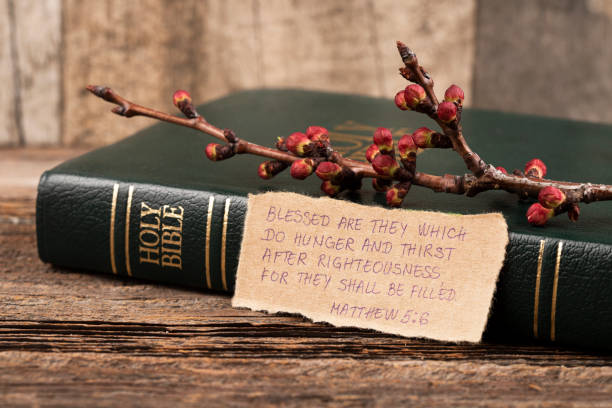 HOLY
HOLY
BIBLE
BLESSED ARE THEY WHICH
DO HUNGER AND THIRST
AFTER RIGHTEOUSNESS
FOR THEY SHALL BE FILLED.
MATTHEW 5:6